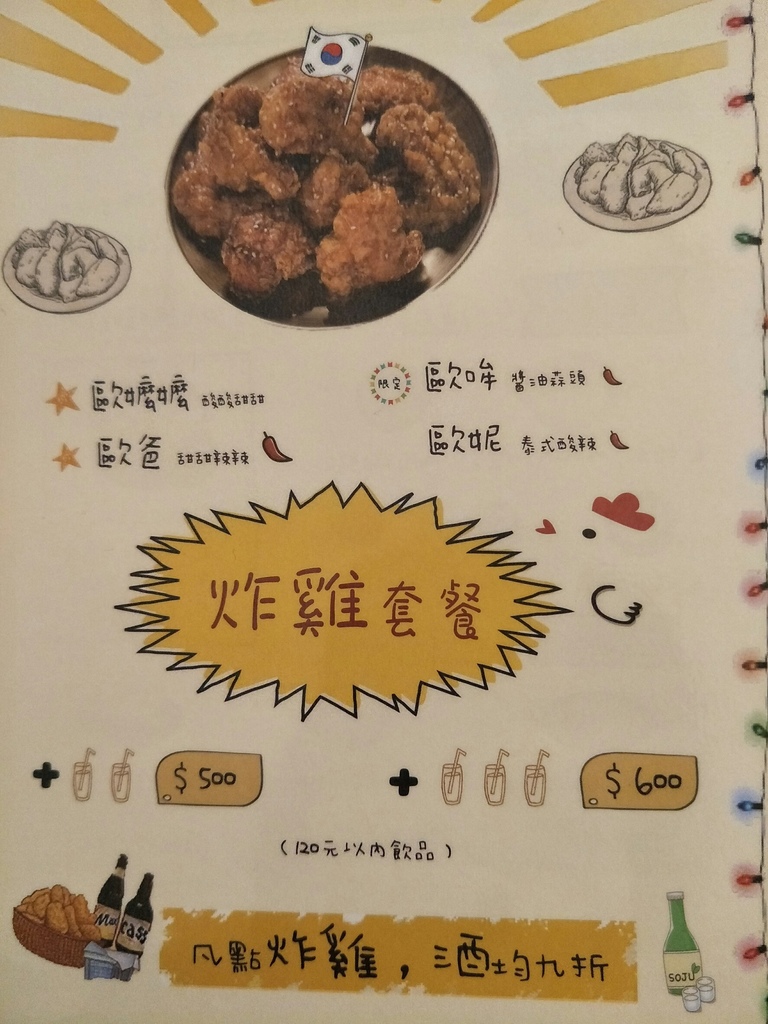 歐嬤嬤 酸酸甜甜
歐爸 甜甜辣辣
限定 歐哞 醬油蒜頭
歐妮 泰式酸辣
炸雞套餐
+ $500
+ $600
(120元以內飲品)
Max
Cass
凡點炸雞,酒均九折
SOJU